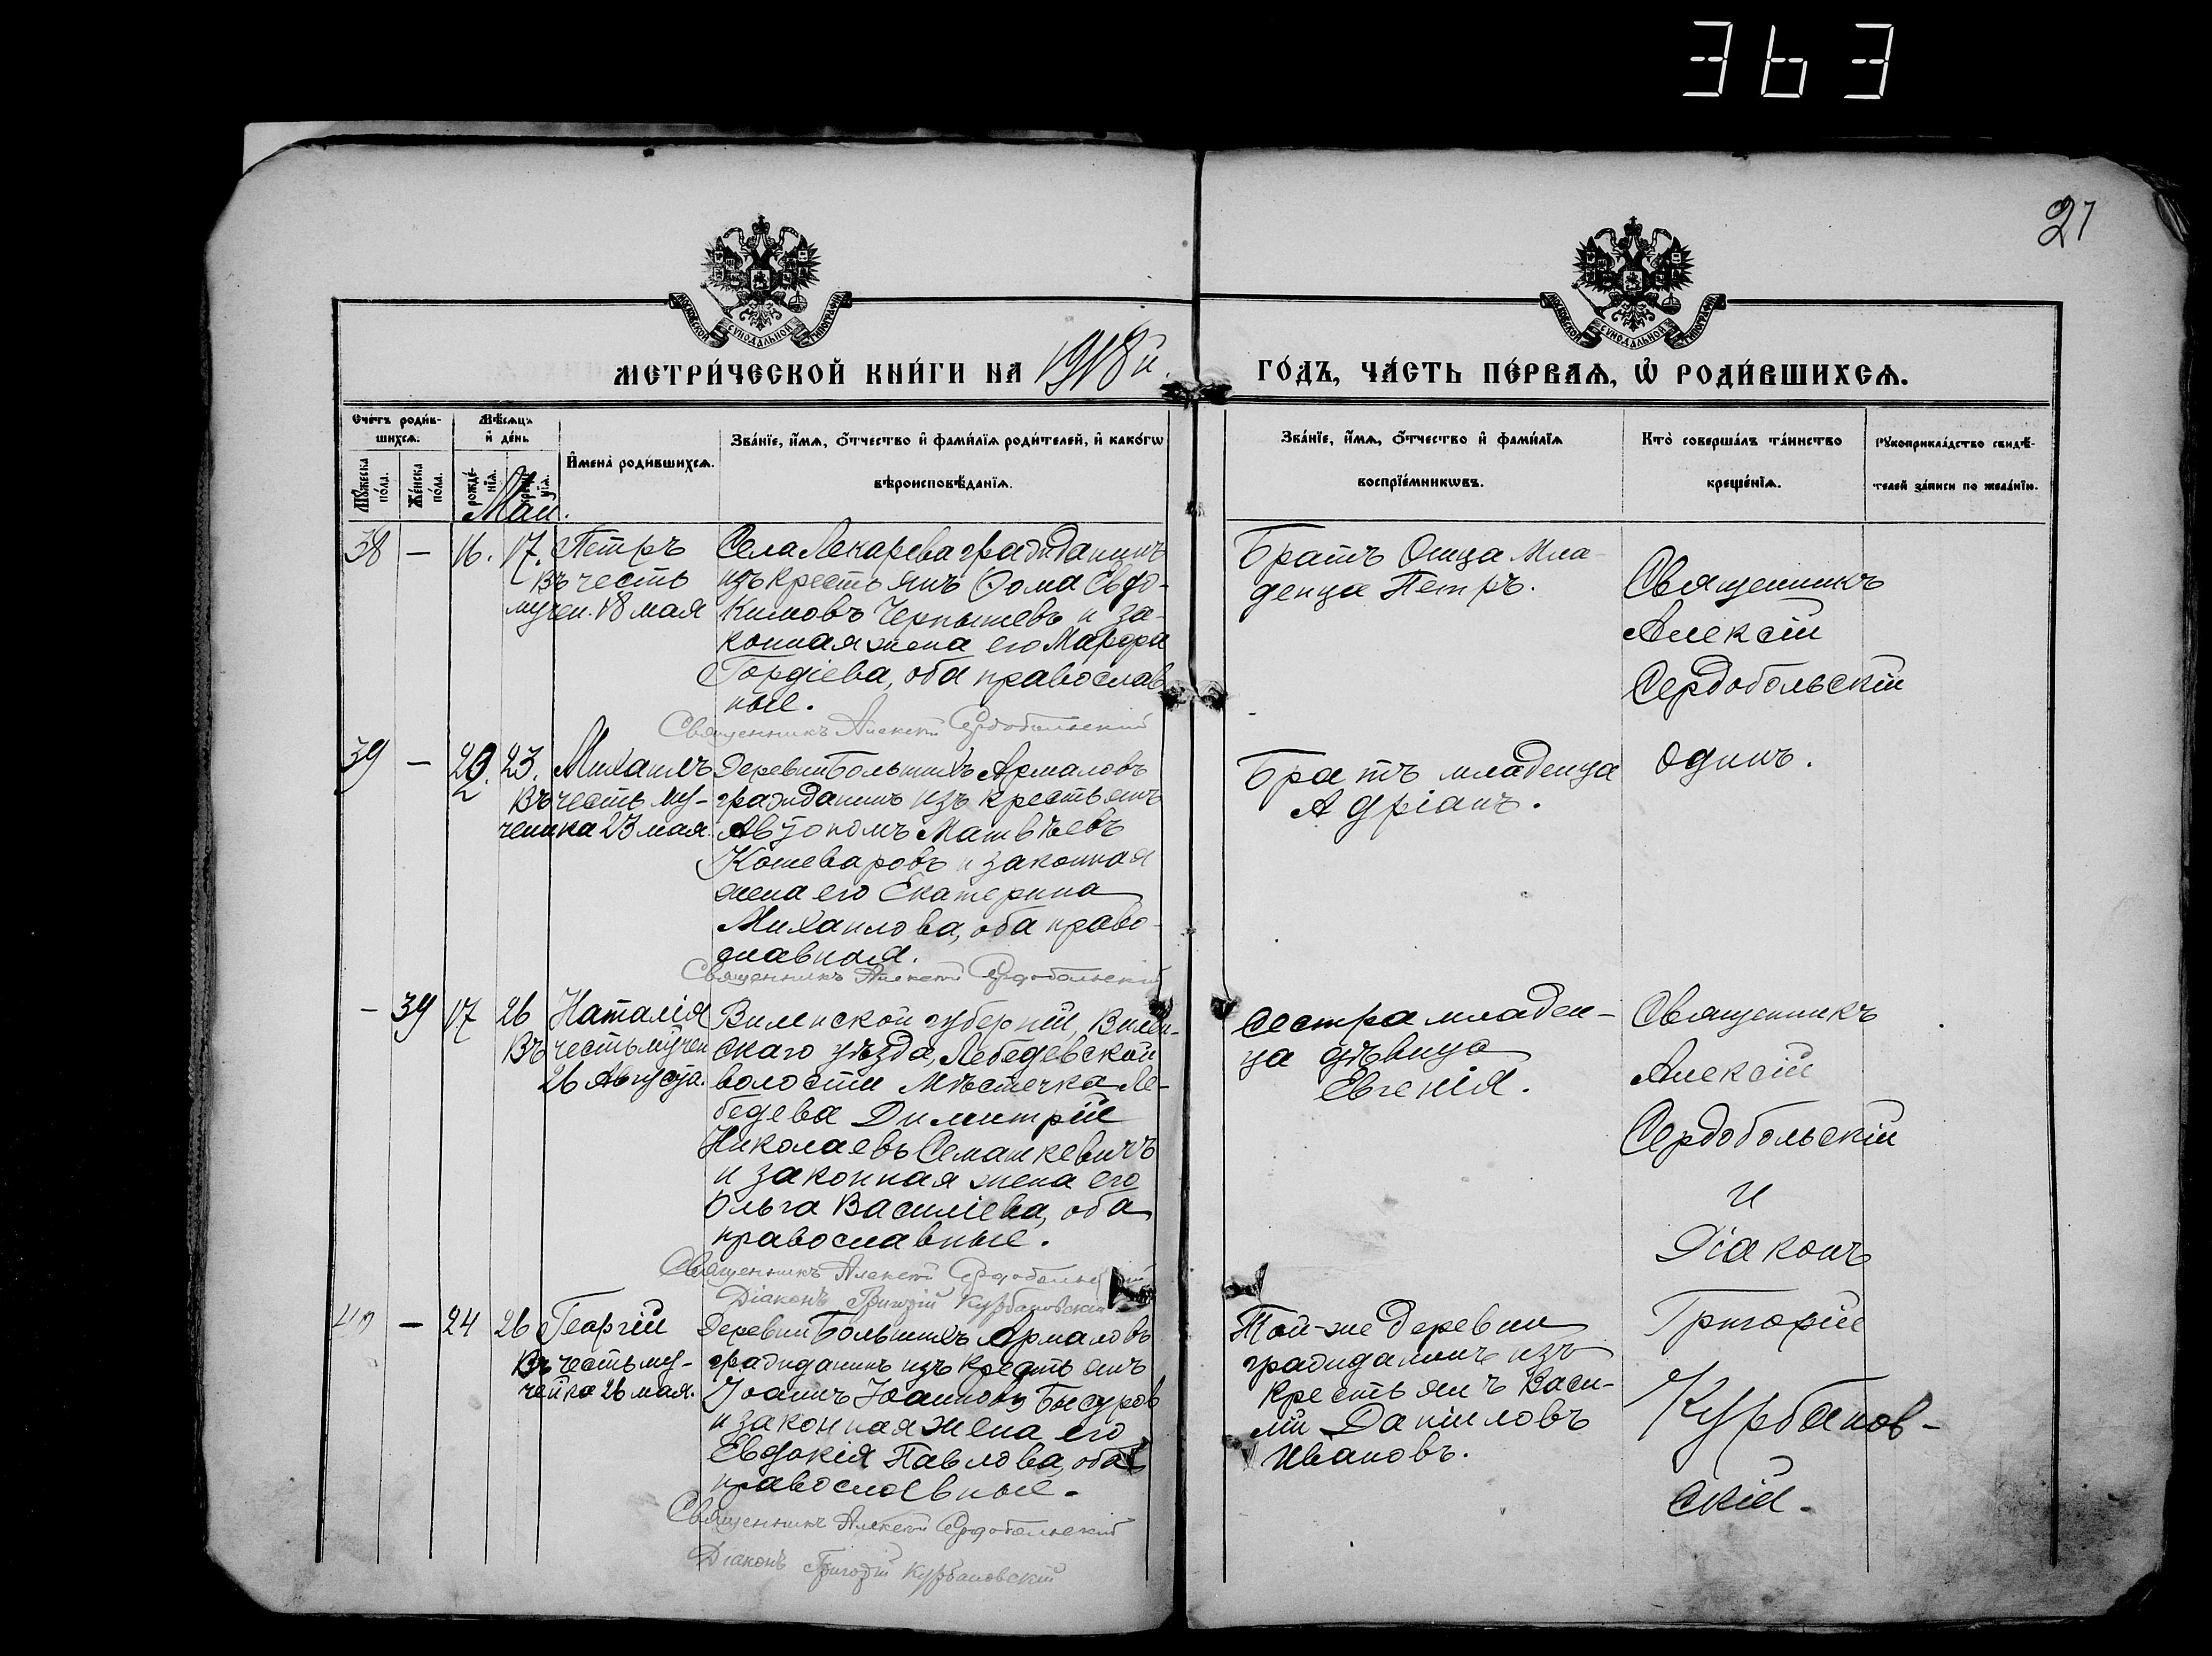 363
21
МОСКОВСКОЙ СѴНОДАЛЬНОЙ ТИПОГРАФІИ
МОСКОВСКОЙ СѴНОДАЛЬНОЙ ТИПОГРАФІИ
МЕТРИ́ЧЕСКОЙ КНИ́ГИ НА 1918й.
ГО́ДЪ, ЧА́СТЬ ПЕ́РВАѦ, Ѽ РОДИ́ВШИХСѦ.
Сче́тъ роди́в-
шихсѧ.
Мꙋ́жеска по́ла.
Же́нска по́ла.
Мѣ́сѧцъ
и҆ де́нь
рожде́-нїѧ.
креще́-нїѧ.
И҆мена̀ роди́вшихсѧ.
Зва́нїе, и҆́мѧ, ѻ҆́тчество и҆ фами́лїѧ роди́телей, и҆ како́гѡ
вѣроисповѣ́данїѧ.
Зва́нїе, и҆́мѧ, ѻ҆́тчество и҆ фами́лїѧ
воспрїе́мникѡвъ.
Кто̀ соверша́лъ та́инство
креще́нїѧ.
Рꙋкоприкла́дство свидѣ́-
телей за́писи по жела́нїю.
Май.
38 — 16. 17. Петръ
Въ честь
мучен. 18 мая
Села Лекарева гражданинъ
изъ крестьянъ Ѳома Евдо-
кимовъ Чернышевъ и за-
конная жена его Марѳа
Гордіева, оба православ
ные.
Священникъ Алексій Сердобольскій
Братъ Отца Мла-
денца Петръ.
Священникъ
Алексій
Сердобольскій
одинъ.
39 — 20. 23. Михаилъ
Въ честь му-
ченика 23 мая.
Деревни Большихъ Армаловъ
гражданинъ изъ крестьянъ
Автономъ Матвѣевъ
Кошеваровъ и законная
жена его Екатерина
Михаилова, оба право-
славная.
Священникъ Алексій Сердобольскій
Братъ младенца
Адріанъ.
— 39 17 26 Наталія
Въ честь мучен
26 Августа.
Виленской губерніи, Вилен-
скаго уѣзда, Лебедевской
волости Мѣстечка Ле-
бедева Димитрій
Николаевъ Семашкевичъ
и законная жена его
Ольга Василіева, оба
православные.
Священникъ Алексій Сердобольскій
Діаконъ Григорій Курбановскій
Сестра младен-
ца дѣвица
Евгенія.
Священникъ
Алексій
Сердобольскій
и
Діаконъ
Григорій
Курбанов-
скій.
40 — 24 26 Георгій
Въ честь му-
чен̃ка 26 мая.
Деревни Большихъ Армаловъ
гражданинъ изъ крестьянъ
Іоаннъ Іоанновъ
и законная жена его
Евдокія Павлова, оба
православные.
Священникъ Алексій Сердобольскій
Діаконъ Григорій Курбановскій
Той-же деревни
гражданинъ изъ
крестьянъ Васи-
лій Даніиловъ
Ивановъ.